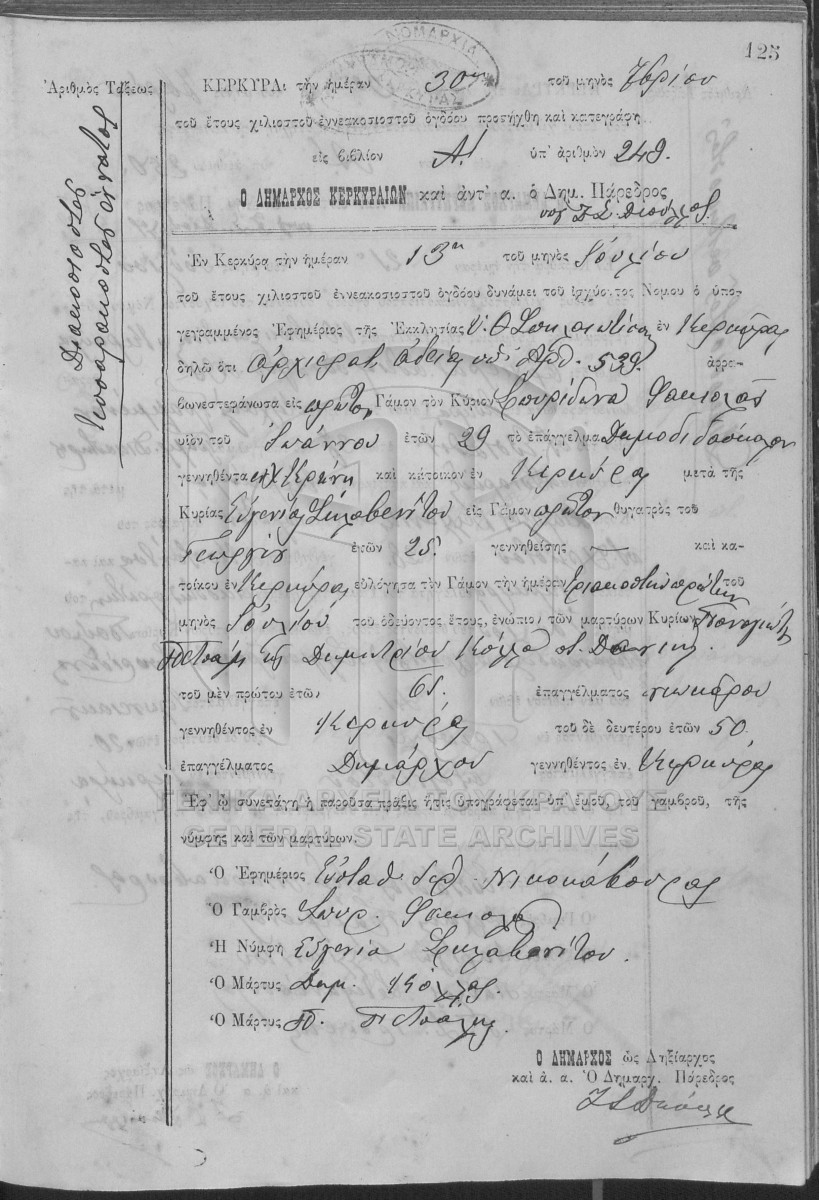 125
ΝΟΜΑΡΧΙΑ
Ἀριθμὸς Τάξεως
Διακοσιοστὸς
τεσσαρακοστὸς ἔννατος
ΚΕΡΚΥΡΑ τὴν ἡμέραν 30ην τοῦ μηνὸς 7βρίου
τοῦ ἔτους χιλιοστοῦ ἐννεακοσιοστοῦ ὀγδόου προσήχθη καὶ κατεγράφη
εἰς βιβλίον Α! ὑπ' ἀριθμὸν 249.
Ο ΔΗΜΑΡΧΟΣ ΚΕΡΚΥΡΑΙΩΝ καὶ ἀντ' α. ὁ Δημ. Πάρεδρος
Ἐν Κερκύρᾳ τὴν ἡμέραν 13η τοῦ μηνὸς Ἰουλίου
τοῦ ἔτους χιλιοστοῦ ἐννεακοσιοστοῦ ὀγδόου δυνάμει τοῦ ἰσχύοντος Νόμου ὁ ὑπο-
γεγραμμένος Ἐφημέριος τῆς Ἐκκλησίας Υ. Θ. Σπηλαιωτίσσης ἐν Κερκύρᾳ
δηλῶ ὅτι ἀρχιερατ. ἀδείᾳ ὑπ' ἀριθ. 539. ἀρρα-
βωνεστεφάνωσα εἰς πρῶτον Γάμον τὸν Κύριον Σπυρίδωνα Φακιολᾶ
υἱὸν τοῦ Ἰωάννου ἐτῶν 29 τὸ ἐπάγγελμα Δημοδιδάσκαλον
γεννηθέντα Κρήνη καὶ κάτοικον ἐν Κερκύρᾳ μετὰ τῆς
Κυρίας Εὐγενίας Σκλαβενίτου εἰς Γάμον πρῶτον θυγατρὸς τοῦ
Γεωργίου ἐτῶν 25. γεννηθείσης — καὶ κα-
τοίκου ἐν Κερκύρᾳ εὐλόγησα τὸν Γάμον τὴν ἡμέραν τριακοστὴν πρώτην τοῦ
μηνὸς Ἰουλίου τοῦ ὁδεύοντος ἔτους, ἐνώπιον τῶν μαρτύρων Κυρίων Παναγιώτη
Πετσάλη Δημητρίου Κόλλα
τοῦ μὲν πρώτου ἐτῶν 65. ἐπαγγέλματος
γεννηθέντος ἐν Κερκύρᾳ τοῦ δὲ δευτέρου ἐτῶν 50.
ἐπαγγέλματος Δημάρχου γεννηθέντος ἐν Κερκύρᾳ
Ἐφ' ᾧ συνετάγη ἡ παροῦσα πρᾶξις ἥτις ὑπογράφεται ὑπ' ἐμοῦ, τοῦ γαμβροῦ, τῆς
νύμφης καὶ τῶν μαρτύρων.
ΓΕΝΙΚΑ ΑΡΧΕΙΑ ΤΟΥ ΚΡΑΤΟΥΣ
GENERAL STATE ARCHIVES
Ὁ Ἐφημέριος Εὐστάθ. Ἱερ. Νικοκάβουρας
Ὁ Γαμβρὸς Σπυρ. Φακιολᾶς
Ἡ Νύμφη Εὐγενία Σκλαβενίτου.
Ὁ Μάρτυς Δημ. Κόλλας.
Ὁ Μάρτυς Π. Πετσάλης.
Ο ΔΗΜΑΡΧΟΣ ὡς Ληξίαρχος
καὶ ἀ. α. Ὁ Δημαρχ. Πάρεδρος